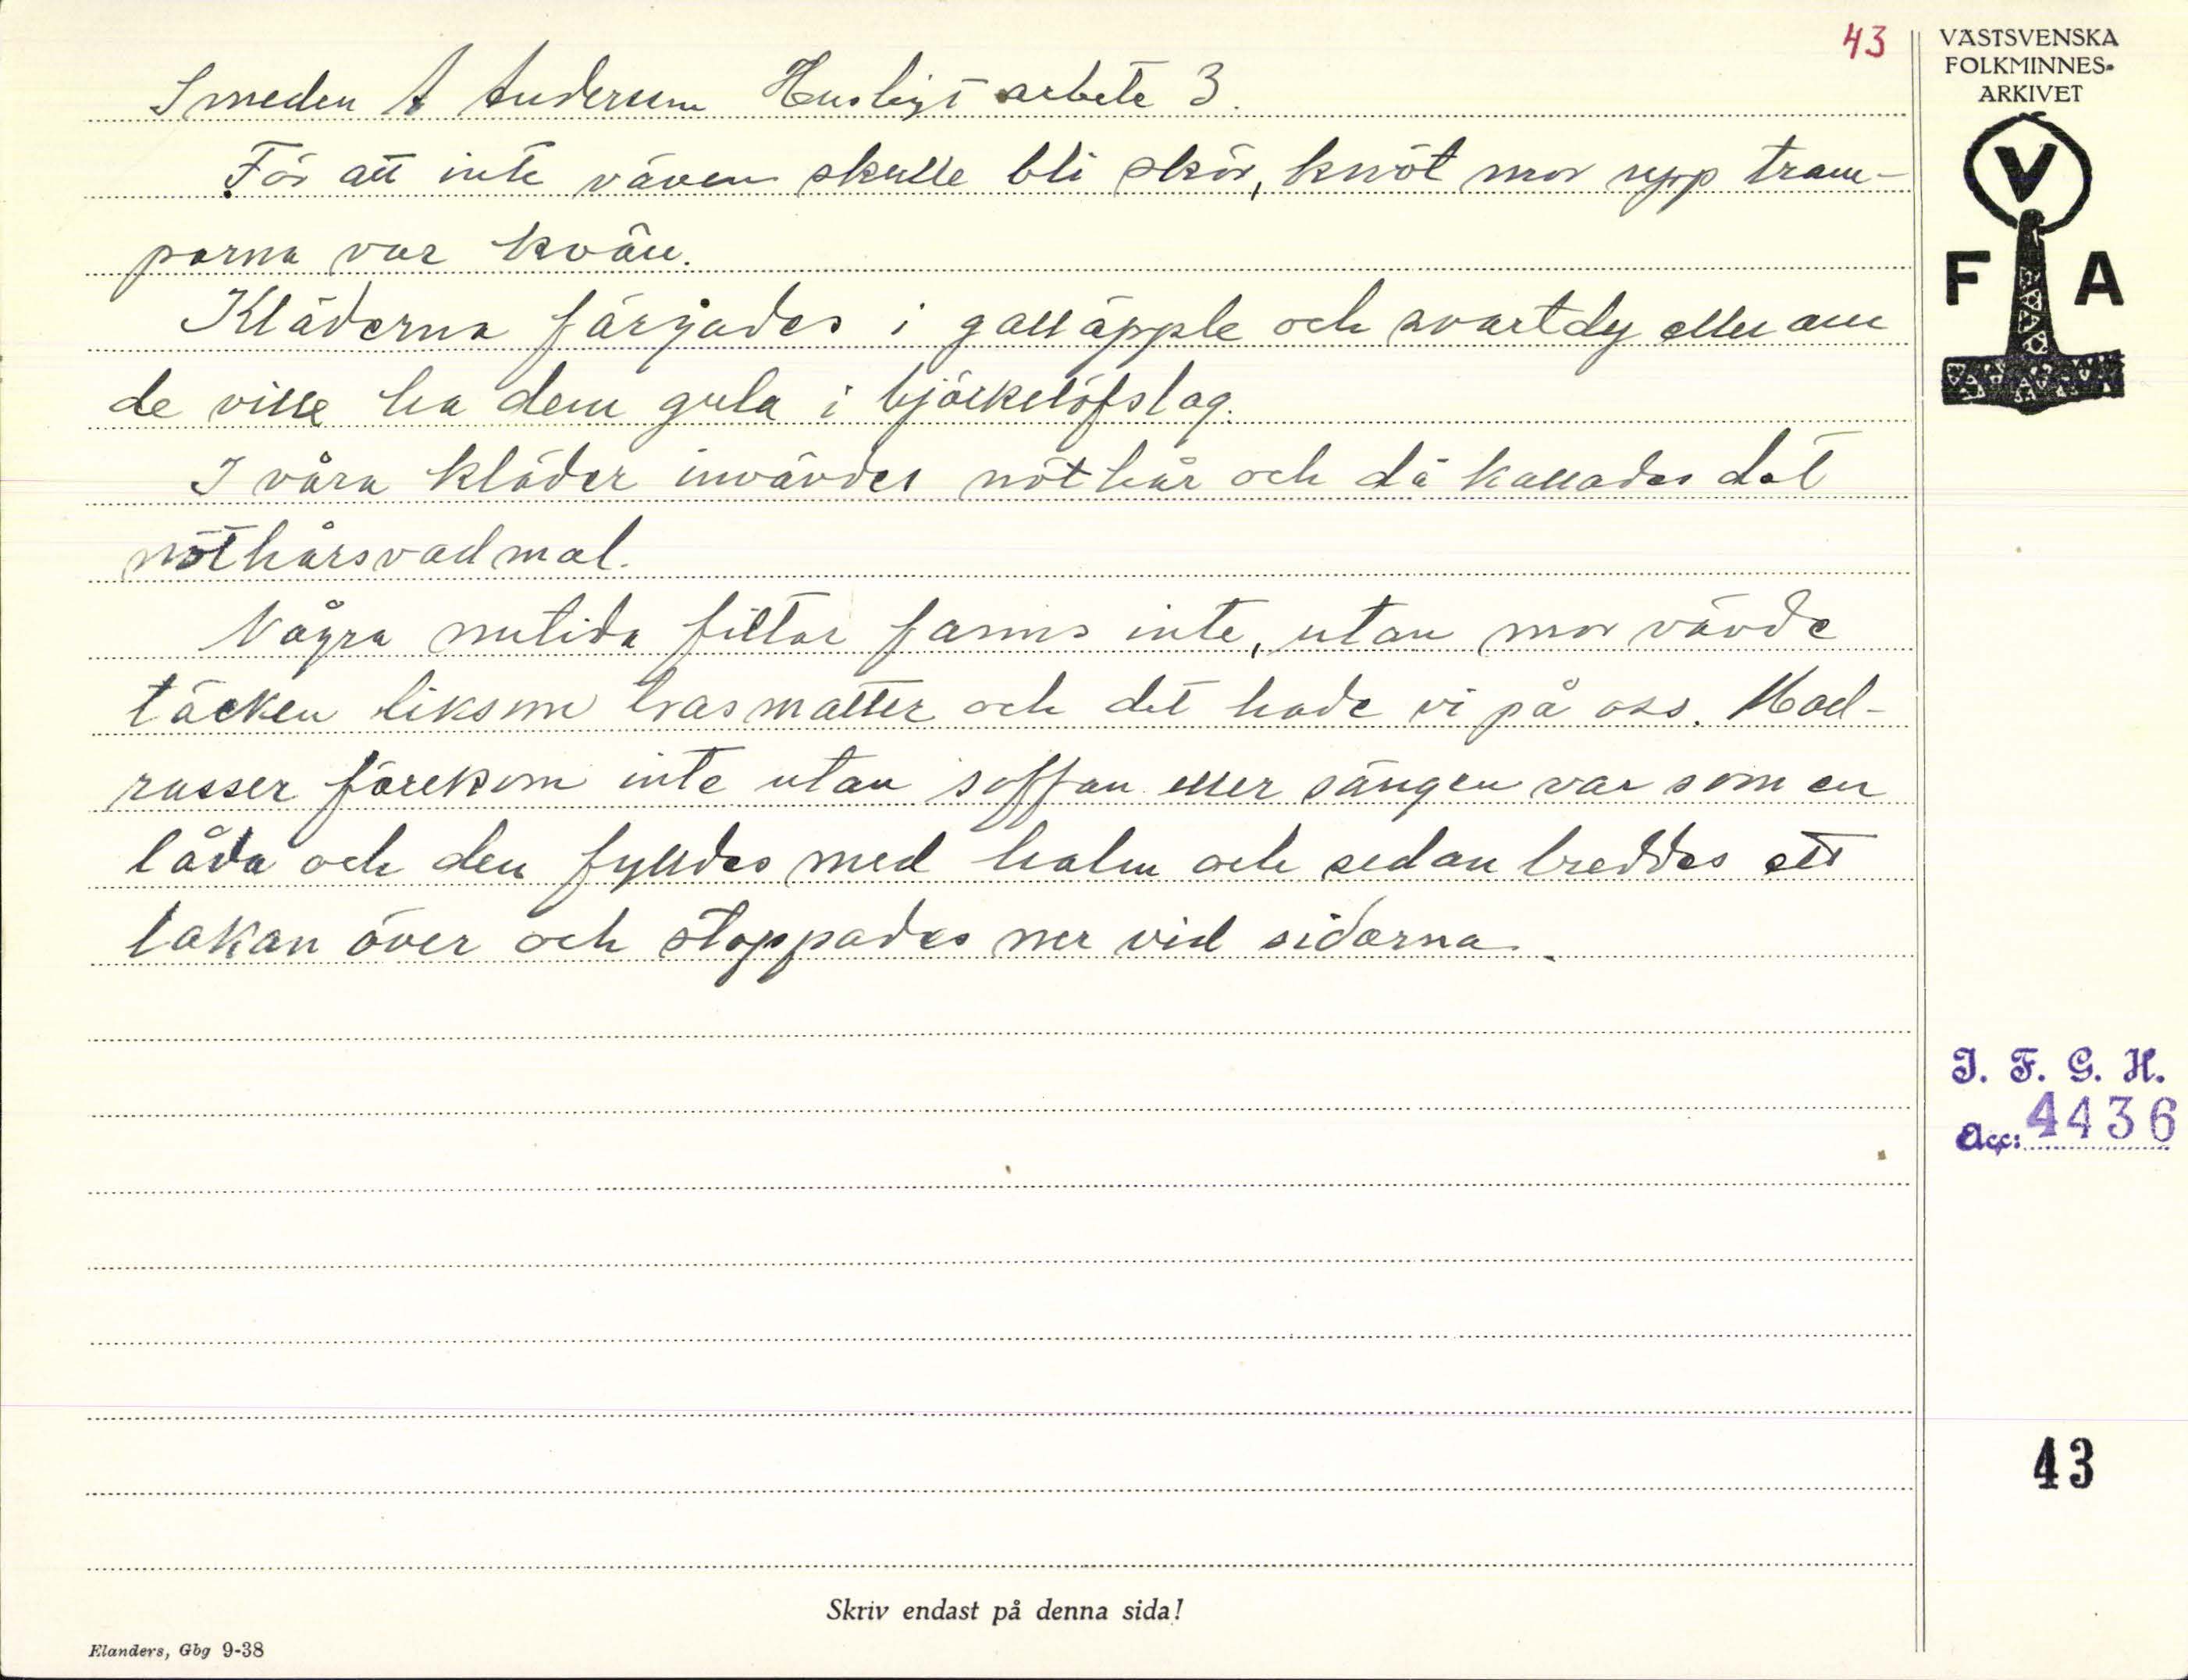 43
Smeden A Anderson Husligt arbete 3.
För att inte väven skulle bli skör, knöt mor upp tram-
porna var kväll.
Kläderna färgades i galläpple och svartdy eller om
de ville ha dem gula i björkelöfslag.
I våra kläder invävdes nöthår och då kallades det
nöthårsvadmal.
Några nutida filtar fanns inte, utan mor vävde
täcken liksom trasmattor och det hade vi på oss. Mad-
rasser förekom inte utan soffan eller sängen var som en
låda och den fylldes med halm och sedan breddes ett
lakan över och stoppades ner vid sidorna.
VÄSTSVENSKA
FOLKMINNES-
ARKIVET
V
F A
I. F. G. H.
Acc: 4436
43
Skriv endast på denna sida!
Elanders, Gbg 9-38